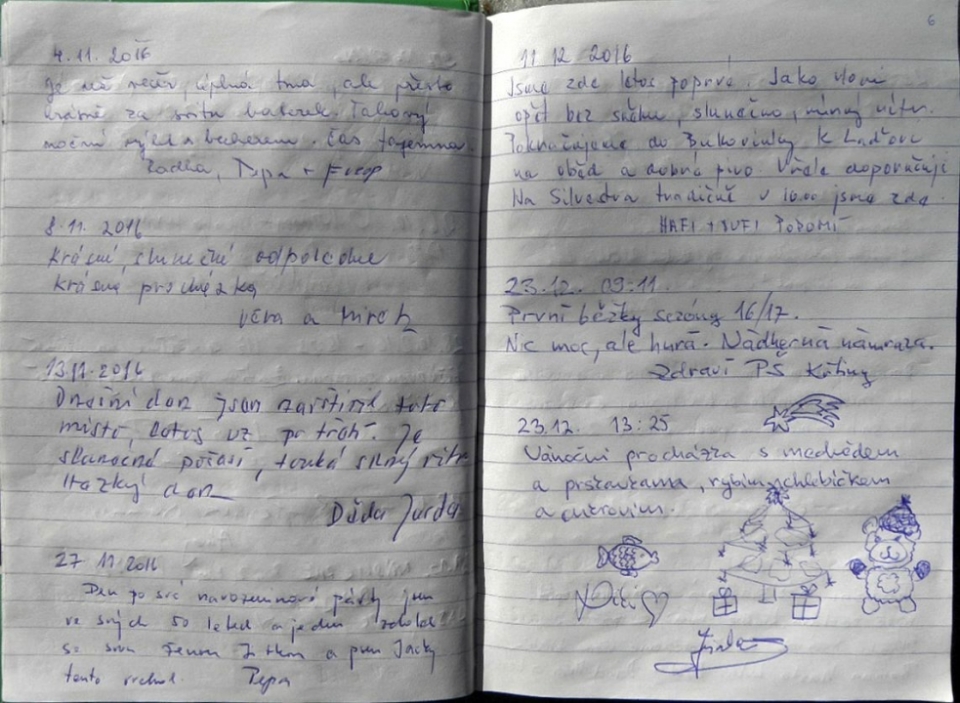 4.11. 2016
Je už večer, úplná tma, ale přesto
krásně za svitu baterek. Takový
noční výlet s . Čas tajemna.
Radka, Pepa +
8.11. 2016
Krásné, slunečné odpoledne
krásná procházka
Věra a Mirek
13.11.2016
Dnešní den jsem navštívil toto
místo, letos už po třetí. Je
slunečné počasí, fouká silný vítr.
Hezký den
Děda Jarda
27 11 2016
Den po své narozeninové párty jsem
ve svých 50 letech a jeden
se svou ženou Jitkou a psem Jacky
tento vrchol. Pepa
6
11 12 2016
Jsme zde letos poprvé. Jako vloni
opět bez sněhu, slunečno, mírný vítr.
Pokračujeme do Bukovinky k Laďovi
na oběd a dobré pivo. Vřele doporučuji
Na Silvestra tradičně v 10.00 jsme zde.
HAFI + JUFI
23.12. 09:11.
První běžky sezóny 16/17.
Nic moc, ale hurá. Nádherná námraza.
Zdraví PŠ Křtiny
23.12. 13:25
Vánoční procházka s medvědem
a prskavkama, rybím chlebíčkem
a cukrovím.